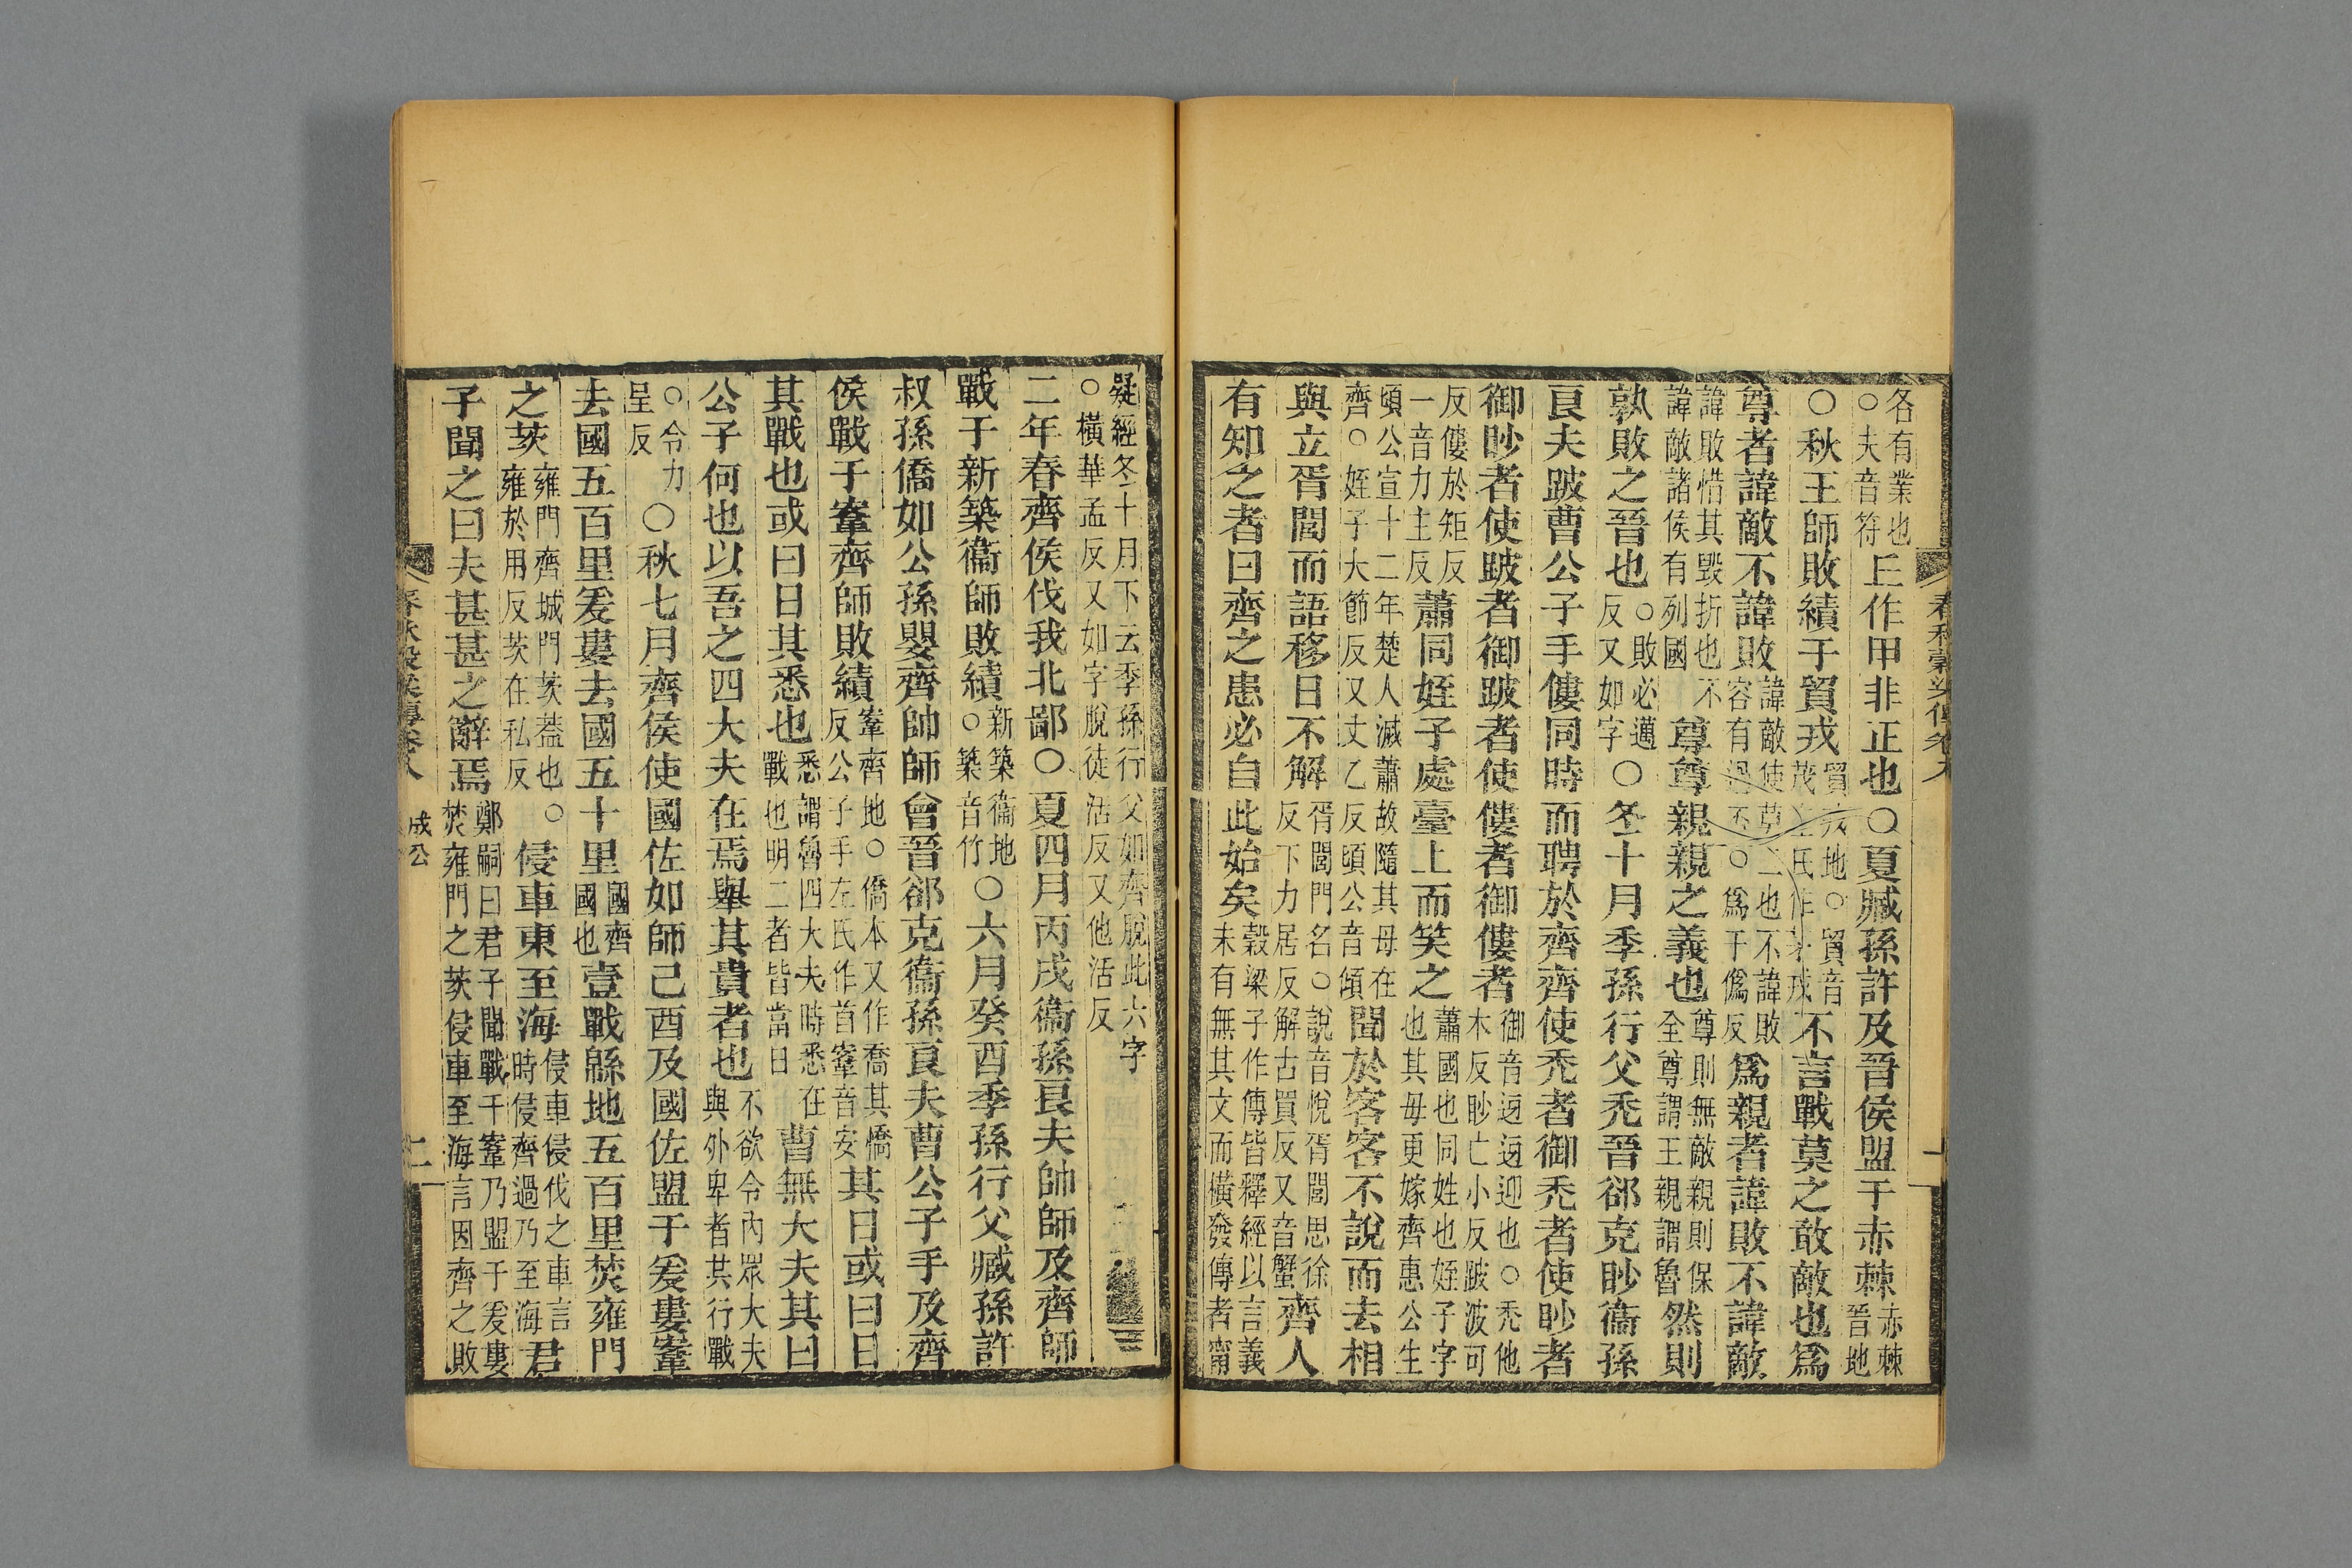 春秋穀梁傳卷八 一
各有業也○夫音符丘作甲非正也○夏臧孫許及晉侯盟于赤棘赤棘晉地
○秋王師敗績于貿戎貿戎地○貿音茂左氏作茅戎不言戰莫之敢敵也爲
尊者諱敵不諱敗諱敵使莫二也不諱敗容有過否○爲于僞反爲親者諱敗不諱敵
諱敗惜其毀折也不諱敵諸侯有列國尊尊親親之義也尊則無敵親則保全尊謂王親謂魯然則
孰敗之晉也○敗必邁反又如字○冬十月季孫行父禿晉郤克眇衞孫
良夫跛曹公子手僂同時而聘於齊齊使禿者御禿者使眇者
御眇者使跛者御跛者使僂者御僂者御音迓迓迎也○禿他木反眇亡小反跛波可
反僂於矩反一音力主反蕭同姪子處臺上而笑之蕭國也同姓也姪子字也其母更嫁齊惠公生
頃公宣十二年楚人滅蕭故隨其母在齊○姪子大節反又丈乙反頃公音傾聞於客客不說而去相
與立胥閭而語移日不解胥閭門名○說音悅胥閭思徐反下力居反解古買反又音蟹齊人
有知之者曰齊之患必自此始矣穀梁子作傳皆釋經以言義未有無其文而橫發傳者甯
疑經冬十月下云季孫行父如齊脫此六字○橫華孟反又如字脫徒活反又他活反
二年春齊侯伐我北鄙○夏四月丙戌衞孫良夫帥師及齊師
戰于新築衞師敗績新築衞地○築音竹○六月癸酉季孫行父臧孫許
叔孫僑如公孫嬰齊帥師會晉郤克衞孫良夫曹公子手及齊
侯戰于鞌齊師敗績鞌齊地○僑本又作喬其憍反公子手左氏作首鞌音安其日或曰日
其戰也或曰日其悉也悉謂魯四大夫時悉在戰也明二者皆當日曹無大夫其曰
公子何也以吾之四大夫在焉舉其貴者也不欲令內眾大夫與外卑者其行戰
○令力呈反○秋七月齊侯使國佐如師己酉及國佐盟于爰婁鞌
去國五百里爰婁去國五十里國齊國也壹戰緜地五百里焚雍門
之茨雍門齊城門茨蓋也○雍於用反茨在私反侵車東至海侵車侵伐之車言時侵齊過乃至海君
子聞之曰夫甚甚之辭焉鄭嗣曰君子聞戰于鞌乃盟于爰婁焚雍門之茨侵車至海言因齊之敗
春秋穀梁傳卷八 成公 二